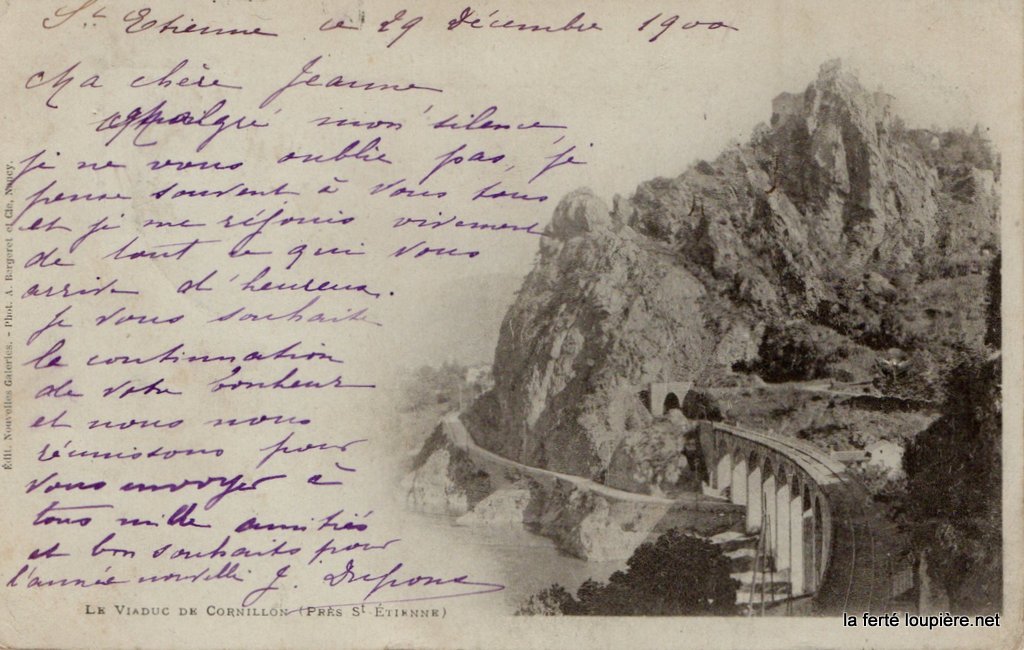 St Etienne ce 29 Décembre 1900
Ma chère Jeanne
Malgré mon silence,
je ne vous oublie pas, je
pense souvent à vous tous
et je me réjouis vivement
de tout ce qui vous
arrive d'heureux.
Je vous souhaite
la continuation
de votre bonheur
et nous nous
réunissons pour
vous envoyer à
tous mille amitiés
et bon souhaits pour
l'année nouvelle J.
LE VIADUC DE CORNILLON (PRÈS ST ÉTIENNE)
Édit. Nouvelles Galeries. - Phot. A. Bergeret et Cie, Nancy.
la ferté loupière.net